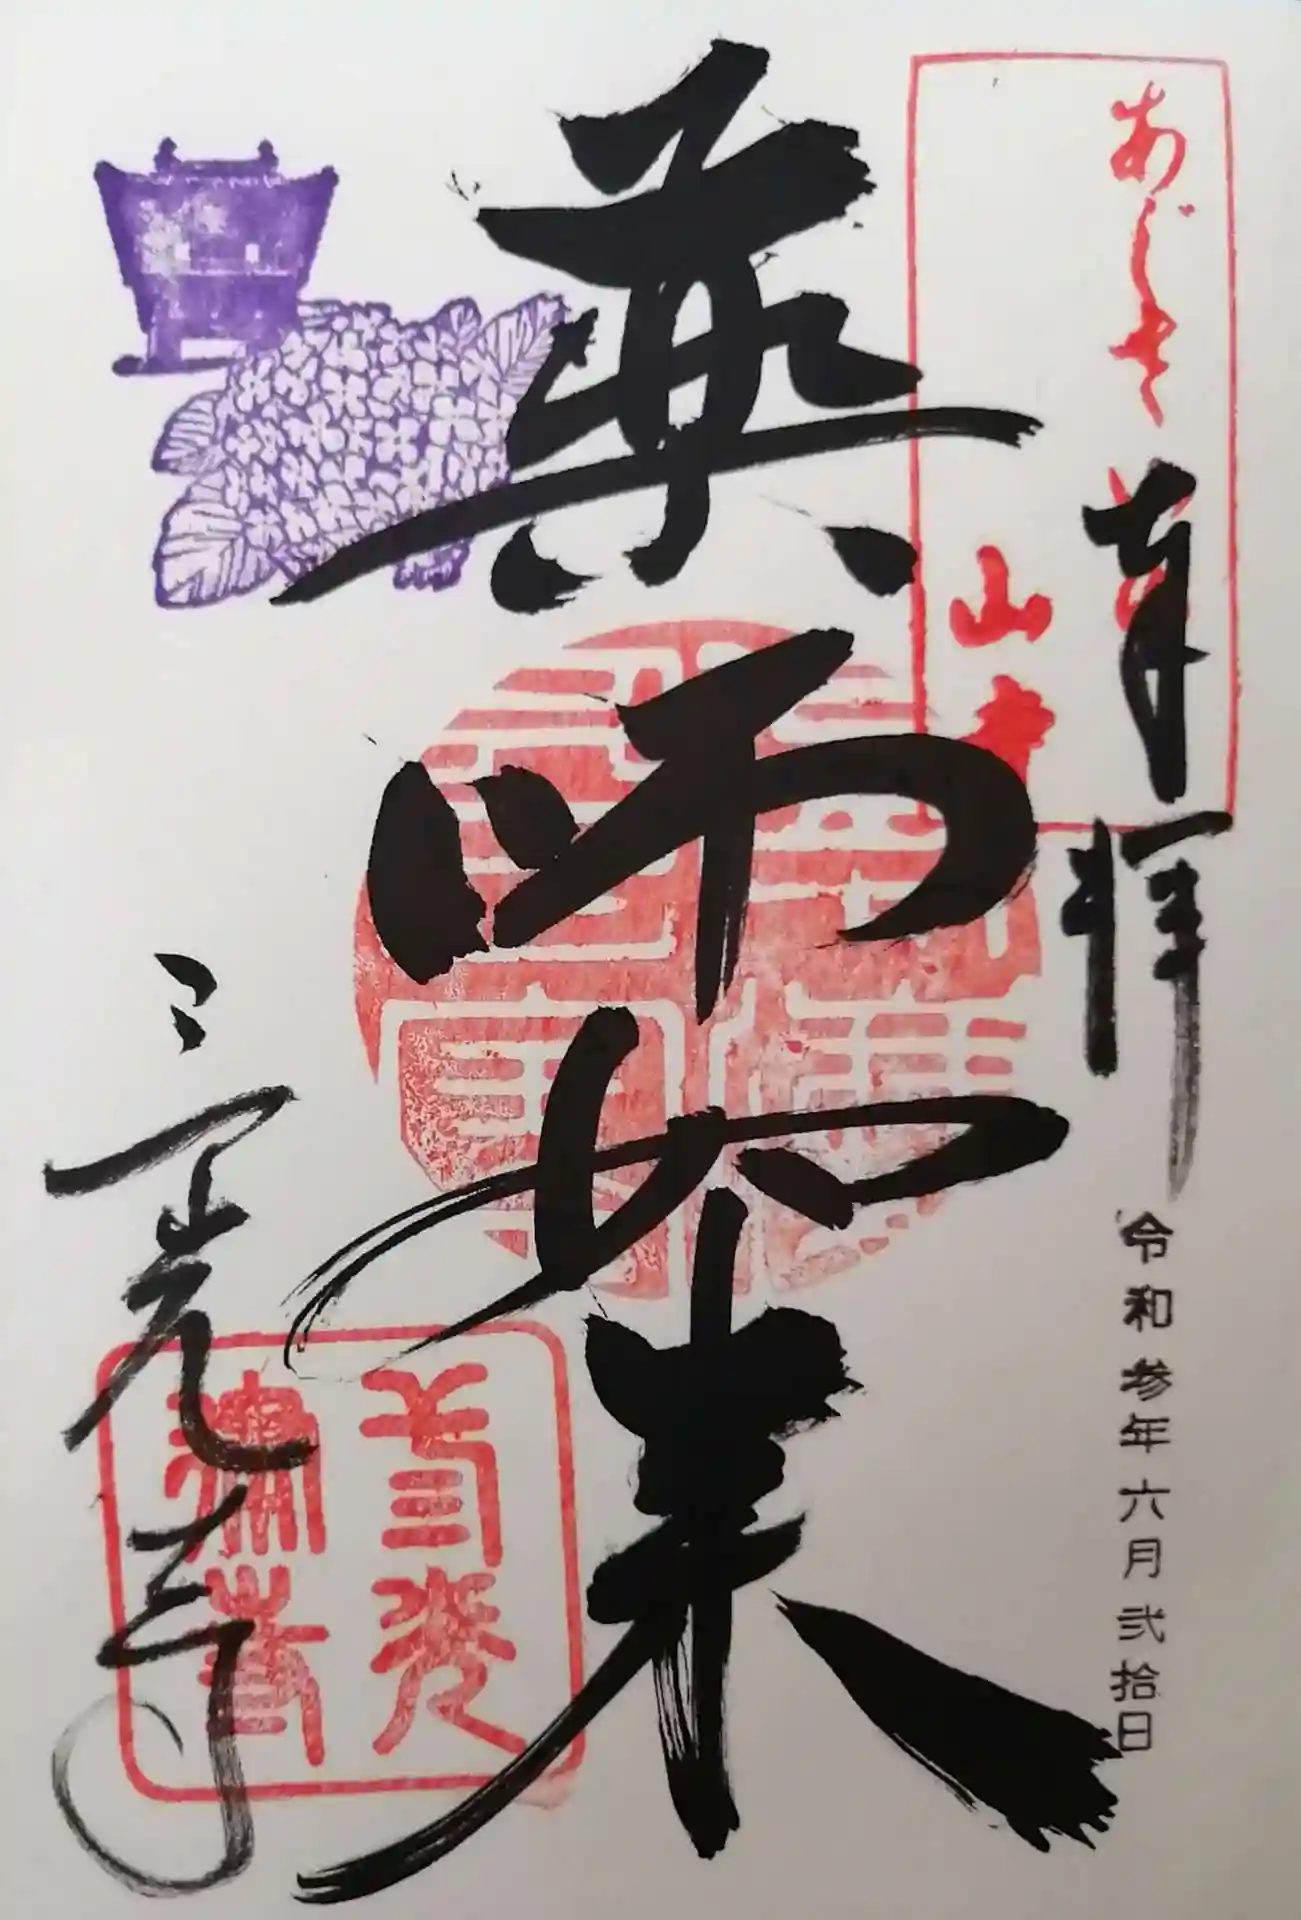 奉拝
令和参年六月弐拾日
あじさゐの
山寺
薬師如来
三光寺